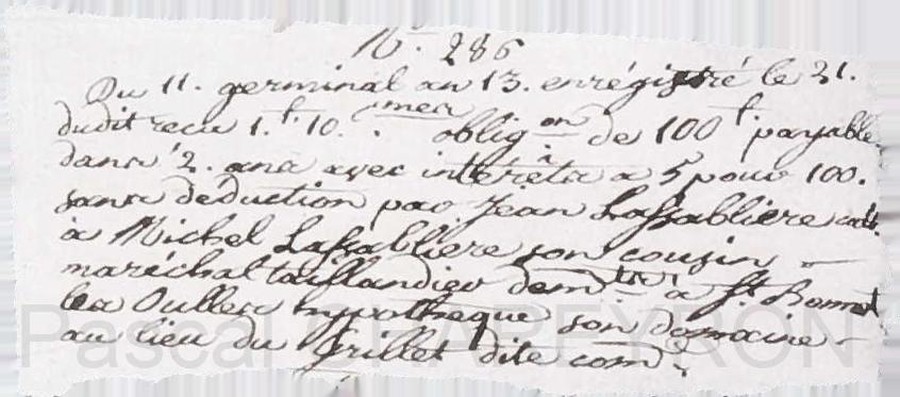 N°. 286
Du 11. germinal an 13. enrégistré le 21.
dudit reçu 1.f. 10. mes oblig.on de 100 f. payable
dans 2. ans avec intérêts a 5 pour 100.
sans déduction par Jean Lassabliere
à Michel Lassabliere son cousin
maréchal taillandier dem.ts a St Bonnet
les Oulles hypothèque son domaine
au lieu du Grillet dite com.
Pascal CHAPEYRON